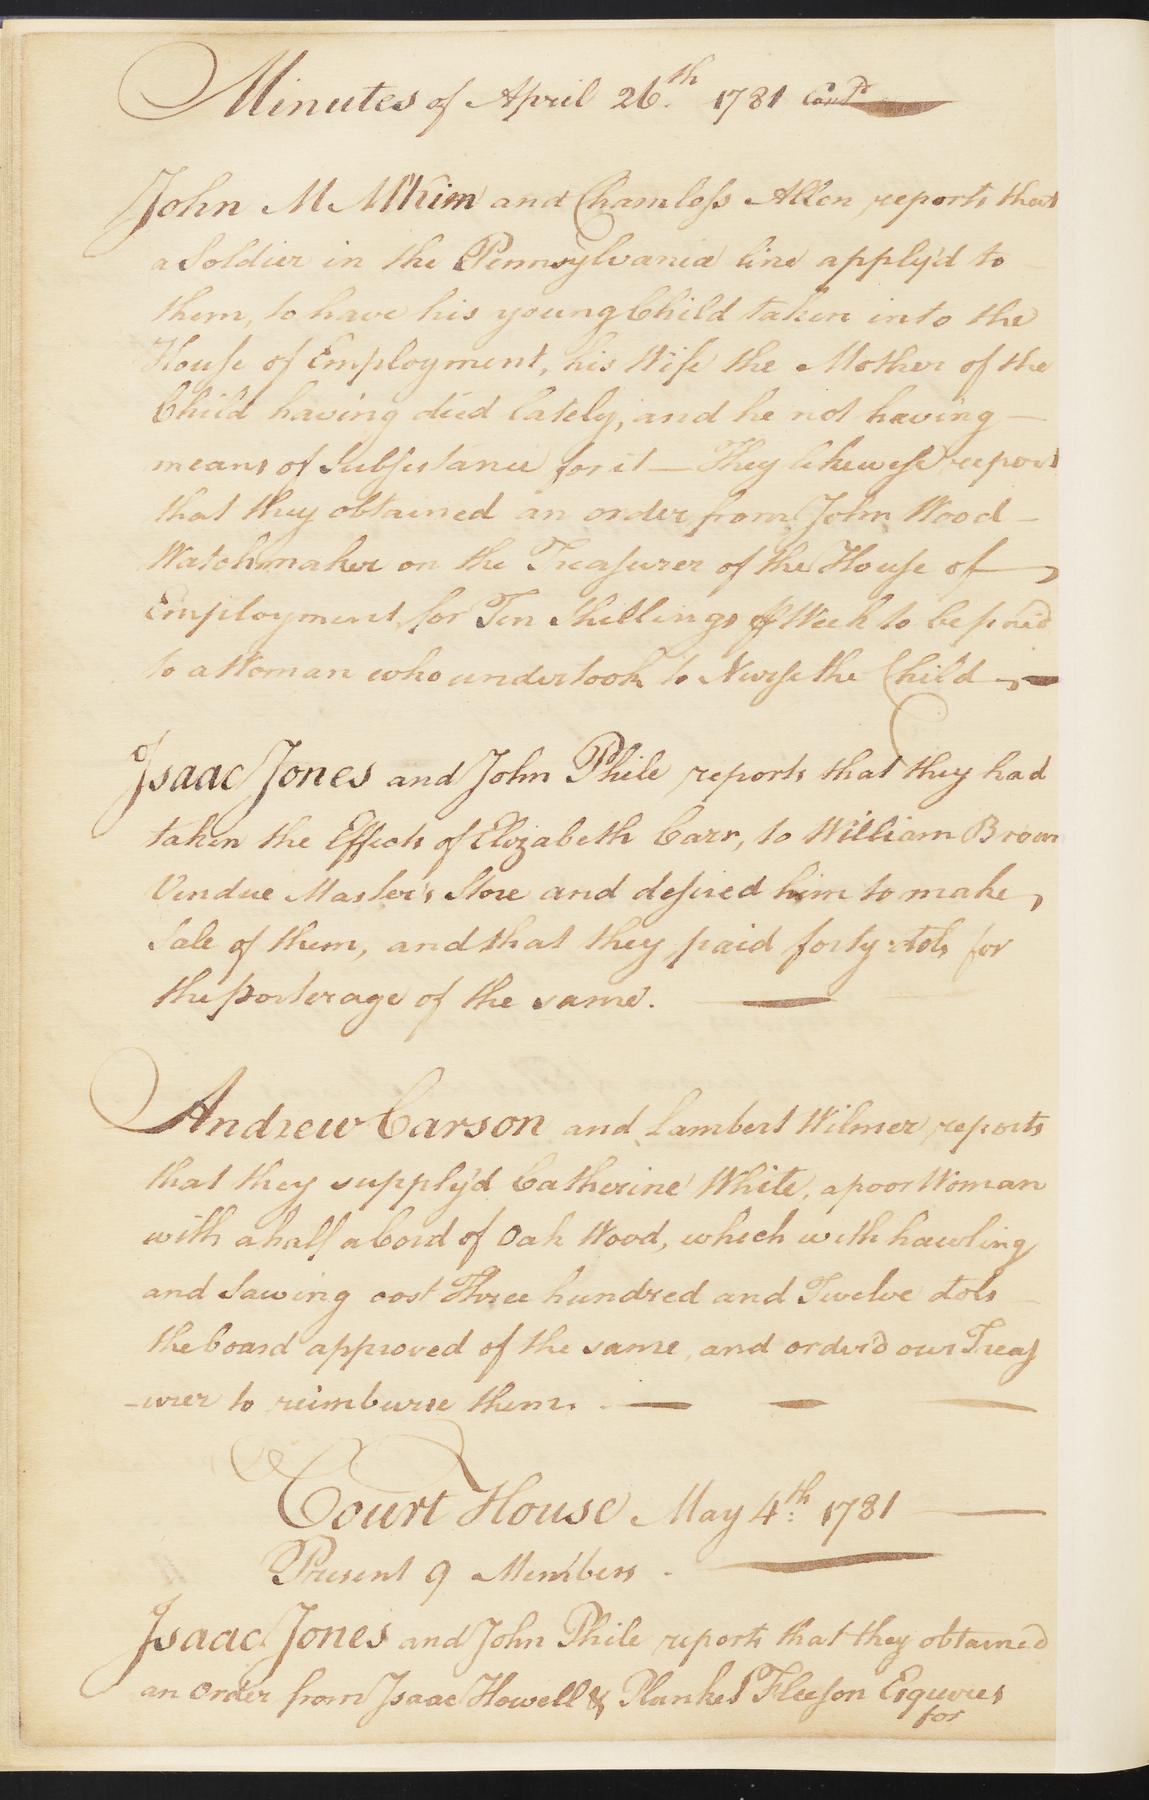 Minutes of April 26th. 1781 Contd
John M McKim and Chamless Allen reports that
a Soldier in the Pennsylvania line apply'd to
them, to have his young Child taken into the
House of Employment, his Wife the Mother of the
Child having died lately, and he not having —
means of Subsistance for it — They likewise report
that they obtained an order from John Wood —
Watchmaker on the Treasurer of the House of —
Employment for Ten Shillings ⅌ Week to be paid
to a Woman who undertook to Nurse the Child —
Isaac Jones and John Phile reports that they had
taken the Effects of Elizabeth Carr, to William Brown
Vendue Master's Store and desired him to make,
Sale of them, and that they paid forty dols for
the porterage of the same. —
Andrew Carson and Lambert Wilmer reports
that they supply'd Catherine White, a poor Woman
with a half a Cord of Oak Wood, which with hawling
and Sawing cost Three hundred and Twelve dols
the board approved of the same, and order'd our Treas
-urer to reimburse them. — — —
Court House May 4th: 1781 —
Present 9 Members. —
Isaac Jones and John Phile reports that they obtained
an Order from Isaac Howell & Plunket Fleeson Esquires
for